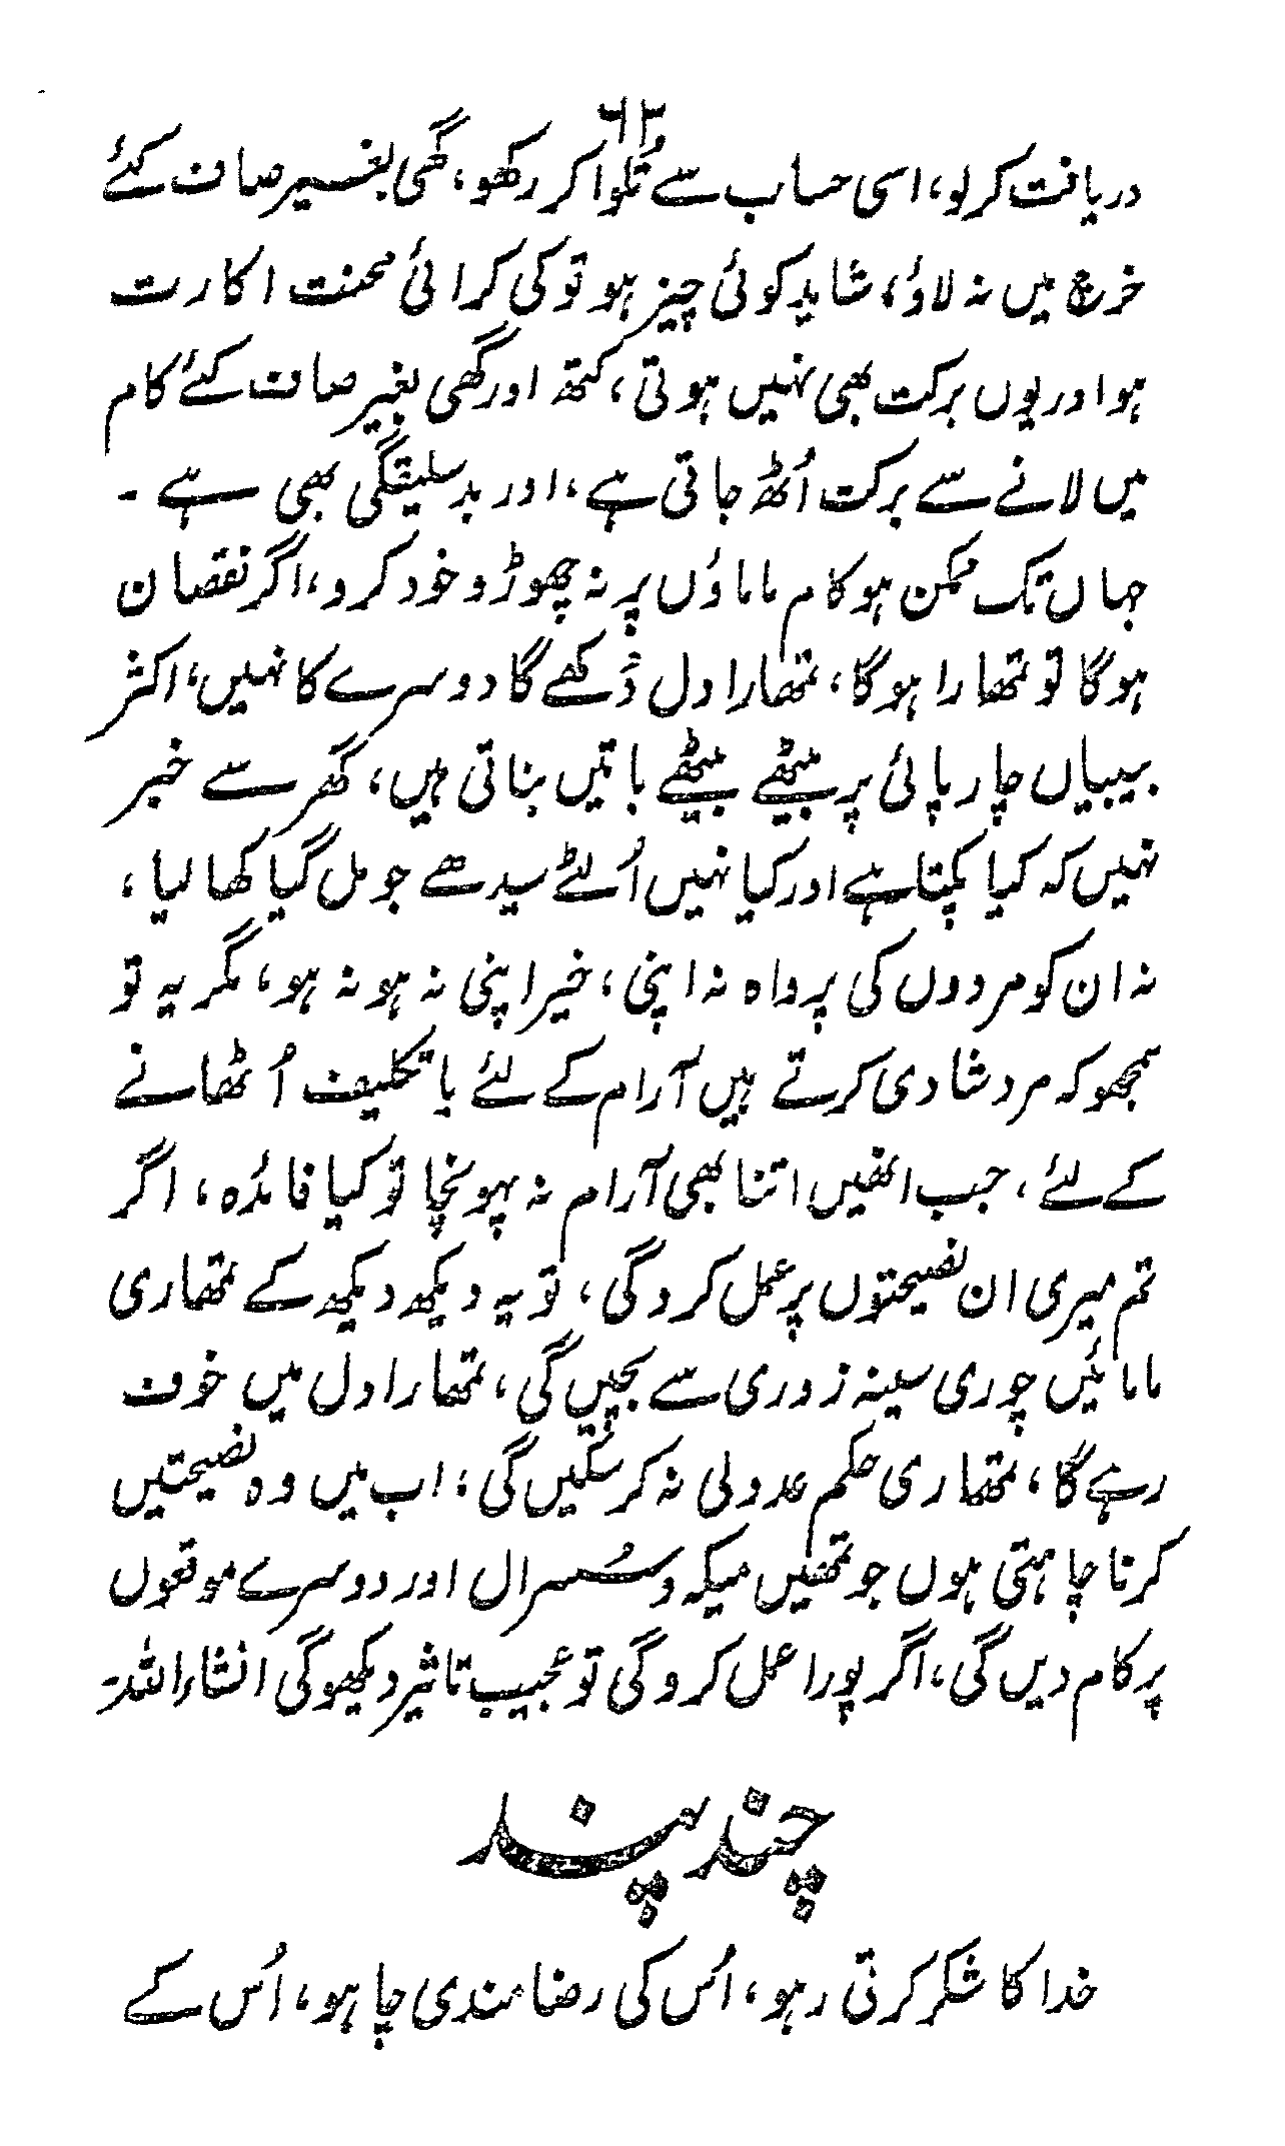 ۶۲
دریافت کر لو، اسی حساب سے تُلوا کر رکھو، گھی بغیر صاف کئے
خرچ میں نہ لاؤ، شاید کوئی چیز ہو تو کی کرائی محنت اکارت
ہو اور یوں برکت بھی نہیں ہوتی، کتھ اور گھی بغیر صاف کئے کام
میں لانے سے برکت اُٹھ جاتی ہے، اور بدسلیقگی بھی ہے۔
جہاں تک ممکن ہو کام ماماؤں پر نہ چھوڑو خود کرو، اگر نقصان
ہوگا تو تمھارا ہوگا، تمھارا دل دُکھے گا دوسرے کا نہیں، اکثر
بیبیاں چارپائی پر بیٹھے بیٹھے باتیں بناتی ہیں، گھر سے خبر
نہیں کہ کیا پکتا ہے اور کیا نہیں اُلٹے سیدھے جو مل گیا کھا لیا،
نہ ان کو مردوں کی پرواہ نہ اپنی، خیر اپنی نہ ہو نہ ہو، مگر یہ تو
سمجھو کہ مرد شادی کرتے ہیں آرام کے لئے یا تکلیف اُٹھانے
کے لئے، جب انھیں اتنا بھی آرام نہ پہونچا تو کیا فائدہ، اگر
تم میری ان نصیحتوں پر عمل کروگی، تو یہ دیکھ دیکھ کے تمھاری
مامائیں چوری سینہ زوری سے بچیں گی، تمھارا دل میں خوف
رہے گا، تمھاری حکم عدولی نہ کر سکیں گی، اب میں وہ نصیحتیں
کرنا چاہتی ہوں جو تمھیں میکہ و سُسرال اور دوسرے موقعوں
پر کام دیں گی، اگر پورا عمل کروگی تو عجیب تاثیر دیکھوگی انشاءاللہ۔
چند پند
خدا کا شکر کرتی رہو، اُس کی رضامندی چاہو، اُس کے